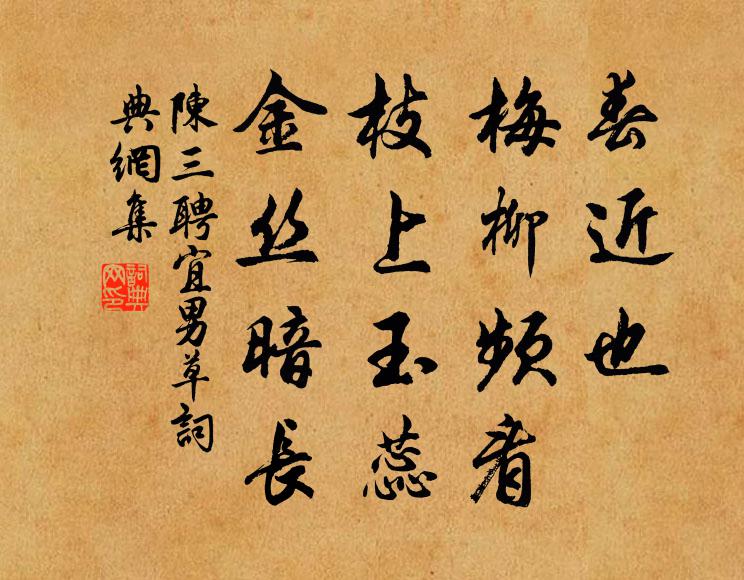 春近也
梅柳频看
枝上玉蕊
金丝暗长
陳三聘宜男草詞
典網集
詞典網印